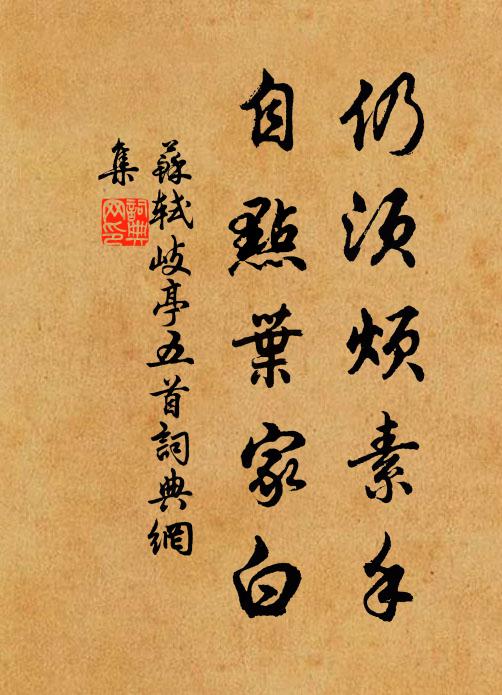 仍須煩素手
自點葉家白
蘇軾岐亭五首詞典網
集
詞典
网印